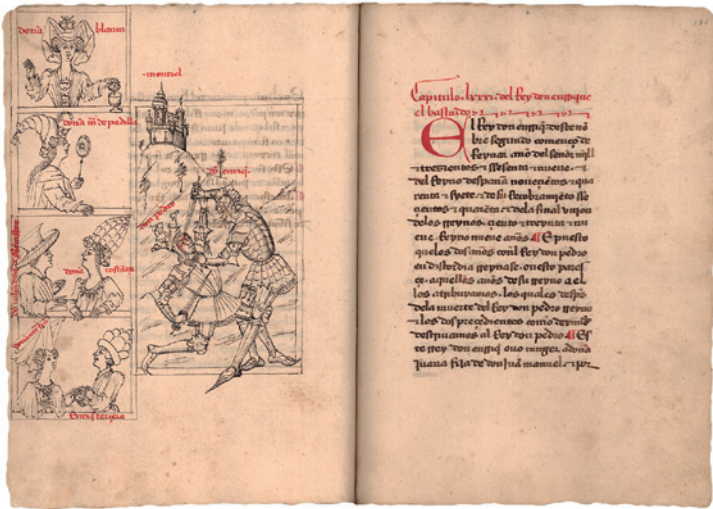 doña blanca
doña mª de padilla
doña costāça
montiel
don pedro
186
Capitulo .lxxxi. del Rey don enrrique
el bastardo
El Rey don enrriq̄ deste nō
bre segundo començo d̄
Reynar año del señor mill
τ trezientos τ ssesenta τ nueve
del Reyno despaña noueçiētos τ qua
renta τ syete τ de su Recobramiēto sse
cientos τ quarēta τ dela final vnion
delos rreynos. çiento τ treynta τ nu
eue. Reyno nueue años. ¶ E puesto
que los dos años con el Rey don pedro
en discordia rreynase.
aquellos años de su reyno a el
los atribuyamos. los quales despꝰ
dela muerte del Rey don pedro rreyno
τ los dos preçedientes como
al Rey don pedro. ¶ Es
te rrey don enrriq̄ ouo muger. a doña
iuana fija de don juā manuel. τ por